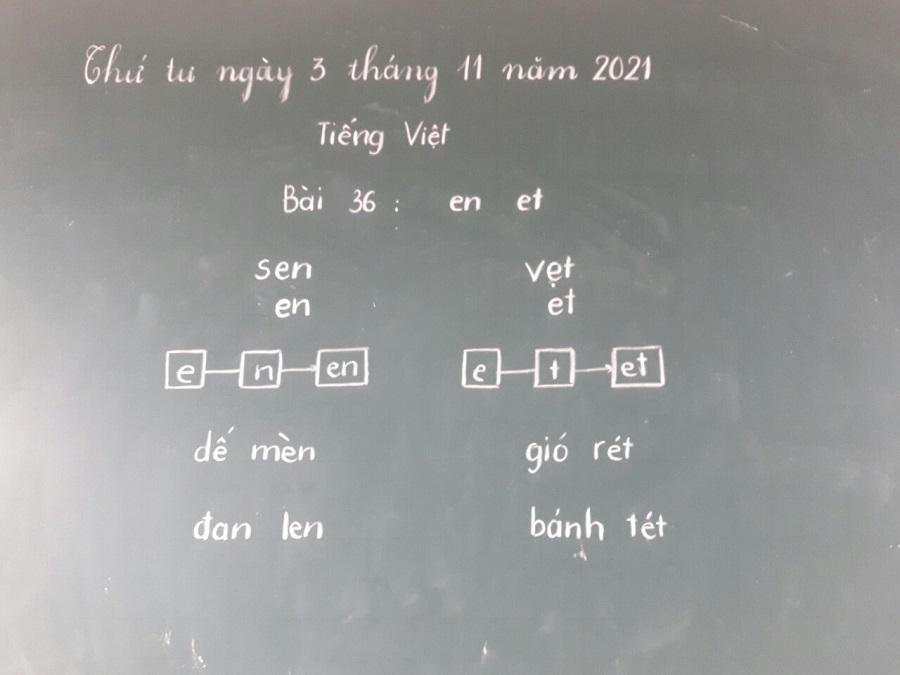 Thứ tư ngày 3 tháng 11 năm 2021
Tiếng Việt
Bài 36 : en et
sen vẹt
en et
e n en e t et
dế mèn gió rét
đan len bánh tét